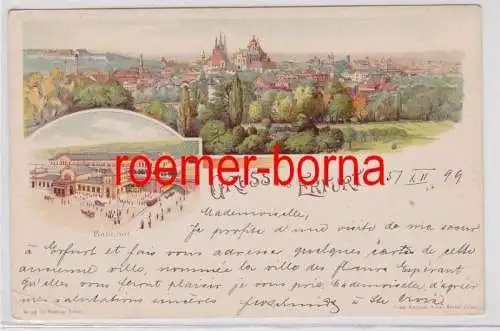 roemer-borna
Gruss aus Erfurt
5/XII 99
Bahnhof
Mademoiselle,
Je profite d'une visite de ma soeur
à Erfurt et fais vous adresser quelques cartes de cette
ancienne ville, nommée la ville des fleurs. Espérant
qu'elles vous feront plaisir je vous prie, Mademoiselle, d'agréer
mes salutations sincères
à Ste Croix